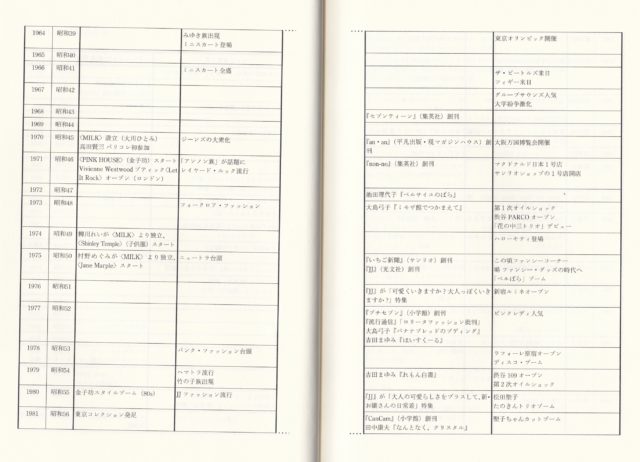 1964 昭和39 みゆき族出現
ミニスカート登場
1965 昭和40
1966 昭和41 ミニスカート全盛
1967 昭和42
1968 昭和43
1969 昭和44
1970 昭和45 〈MILK〉設立（大川ひとみ） ジーンズの大衆化
高田賢三 パリコレ初参加
1971 昭和46 〈PINK HOUSE〉（金子功）スタート 「アンノン族」が話題に
Vivienne Westwood ブティック〈Let レイヤード・ルック流行
It Rock〉オープン（ロンドン）
1972 昭和47
1973 昭和48 フォークロア・ファッション
1974 昭和49 柳川れいが〈MILK〉より独立、
〈Shirley Temple〉（子供服）スタート
1975 昭和50 村野めぐみが〈MILK〉より独立、 ニュートラ台頭
〈Jane Marple〉スタート
1976 昭和51
1977 昭和52
1978 昭和53 パンク・ファッション台頭
1979 昭和54 ハマトラ流行
竹の子族出現
1980 昭和55 金子功スタイルブーム（80s） JJファッション流行
1981 昭和56 東京コレクション発足
東京オリンピック開催
ザ・ビートルズ来日
ツィギー来日
グループサウンズ人気
大学紛争激化
『セブンティーン』（集英社）創刊
『an・an』（平凡出版・現マガジンハウス）創 大阪万国博覧会開催
刊
『non-no』（集英社）創刊 マクドナルド日本1号店
サンリオショップの1号店開店
池田理代子『ベルサイユのばら』
大島弓子『ミモザ館でつかまえて』 第1次オイルショック
渋谷PARCOオープン
「花の中三トリオ」デビュー
ハローキティ登場
『いちご新聞』（サンリオ）創刊 この頃ファンシーリーター
『JJ』（光文社）創刊 鳴 ファンシー・グッズの時代へ
「ベルばら」ブーム
『JJ』が「可愛くいきますか？大人っぽくいき 新宿ルミネオープン
ますか？」特集
『プチセブン』（小学館）創刊 ピンクレディ人気
『流行通信』「ロリータファッション批判」
大島弓子『バナナブレッドのプディング』
吉田まゆみ『はいすくーる』
ラフォーレ原宿オープン
ディスコ・ブーム
吉田まゆみ『れもん白書』 渋谷109オープン
第2次オイルショック
『JJ』が「大人の可愛らしさをプラスして、新・ 松田聖子
お嬢さんの日常着」特集 たのきんトリオブーム
『CanCam』（小学館）創刊 聖子ちゃんカットブーム
田中康夫『なんとなく、クリスタル』